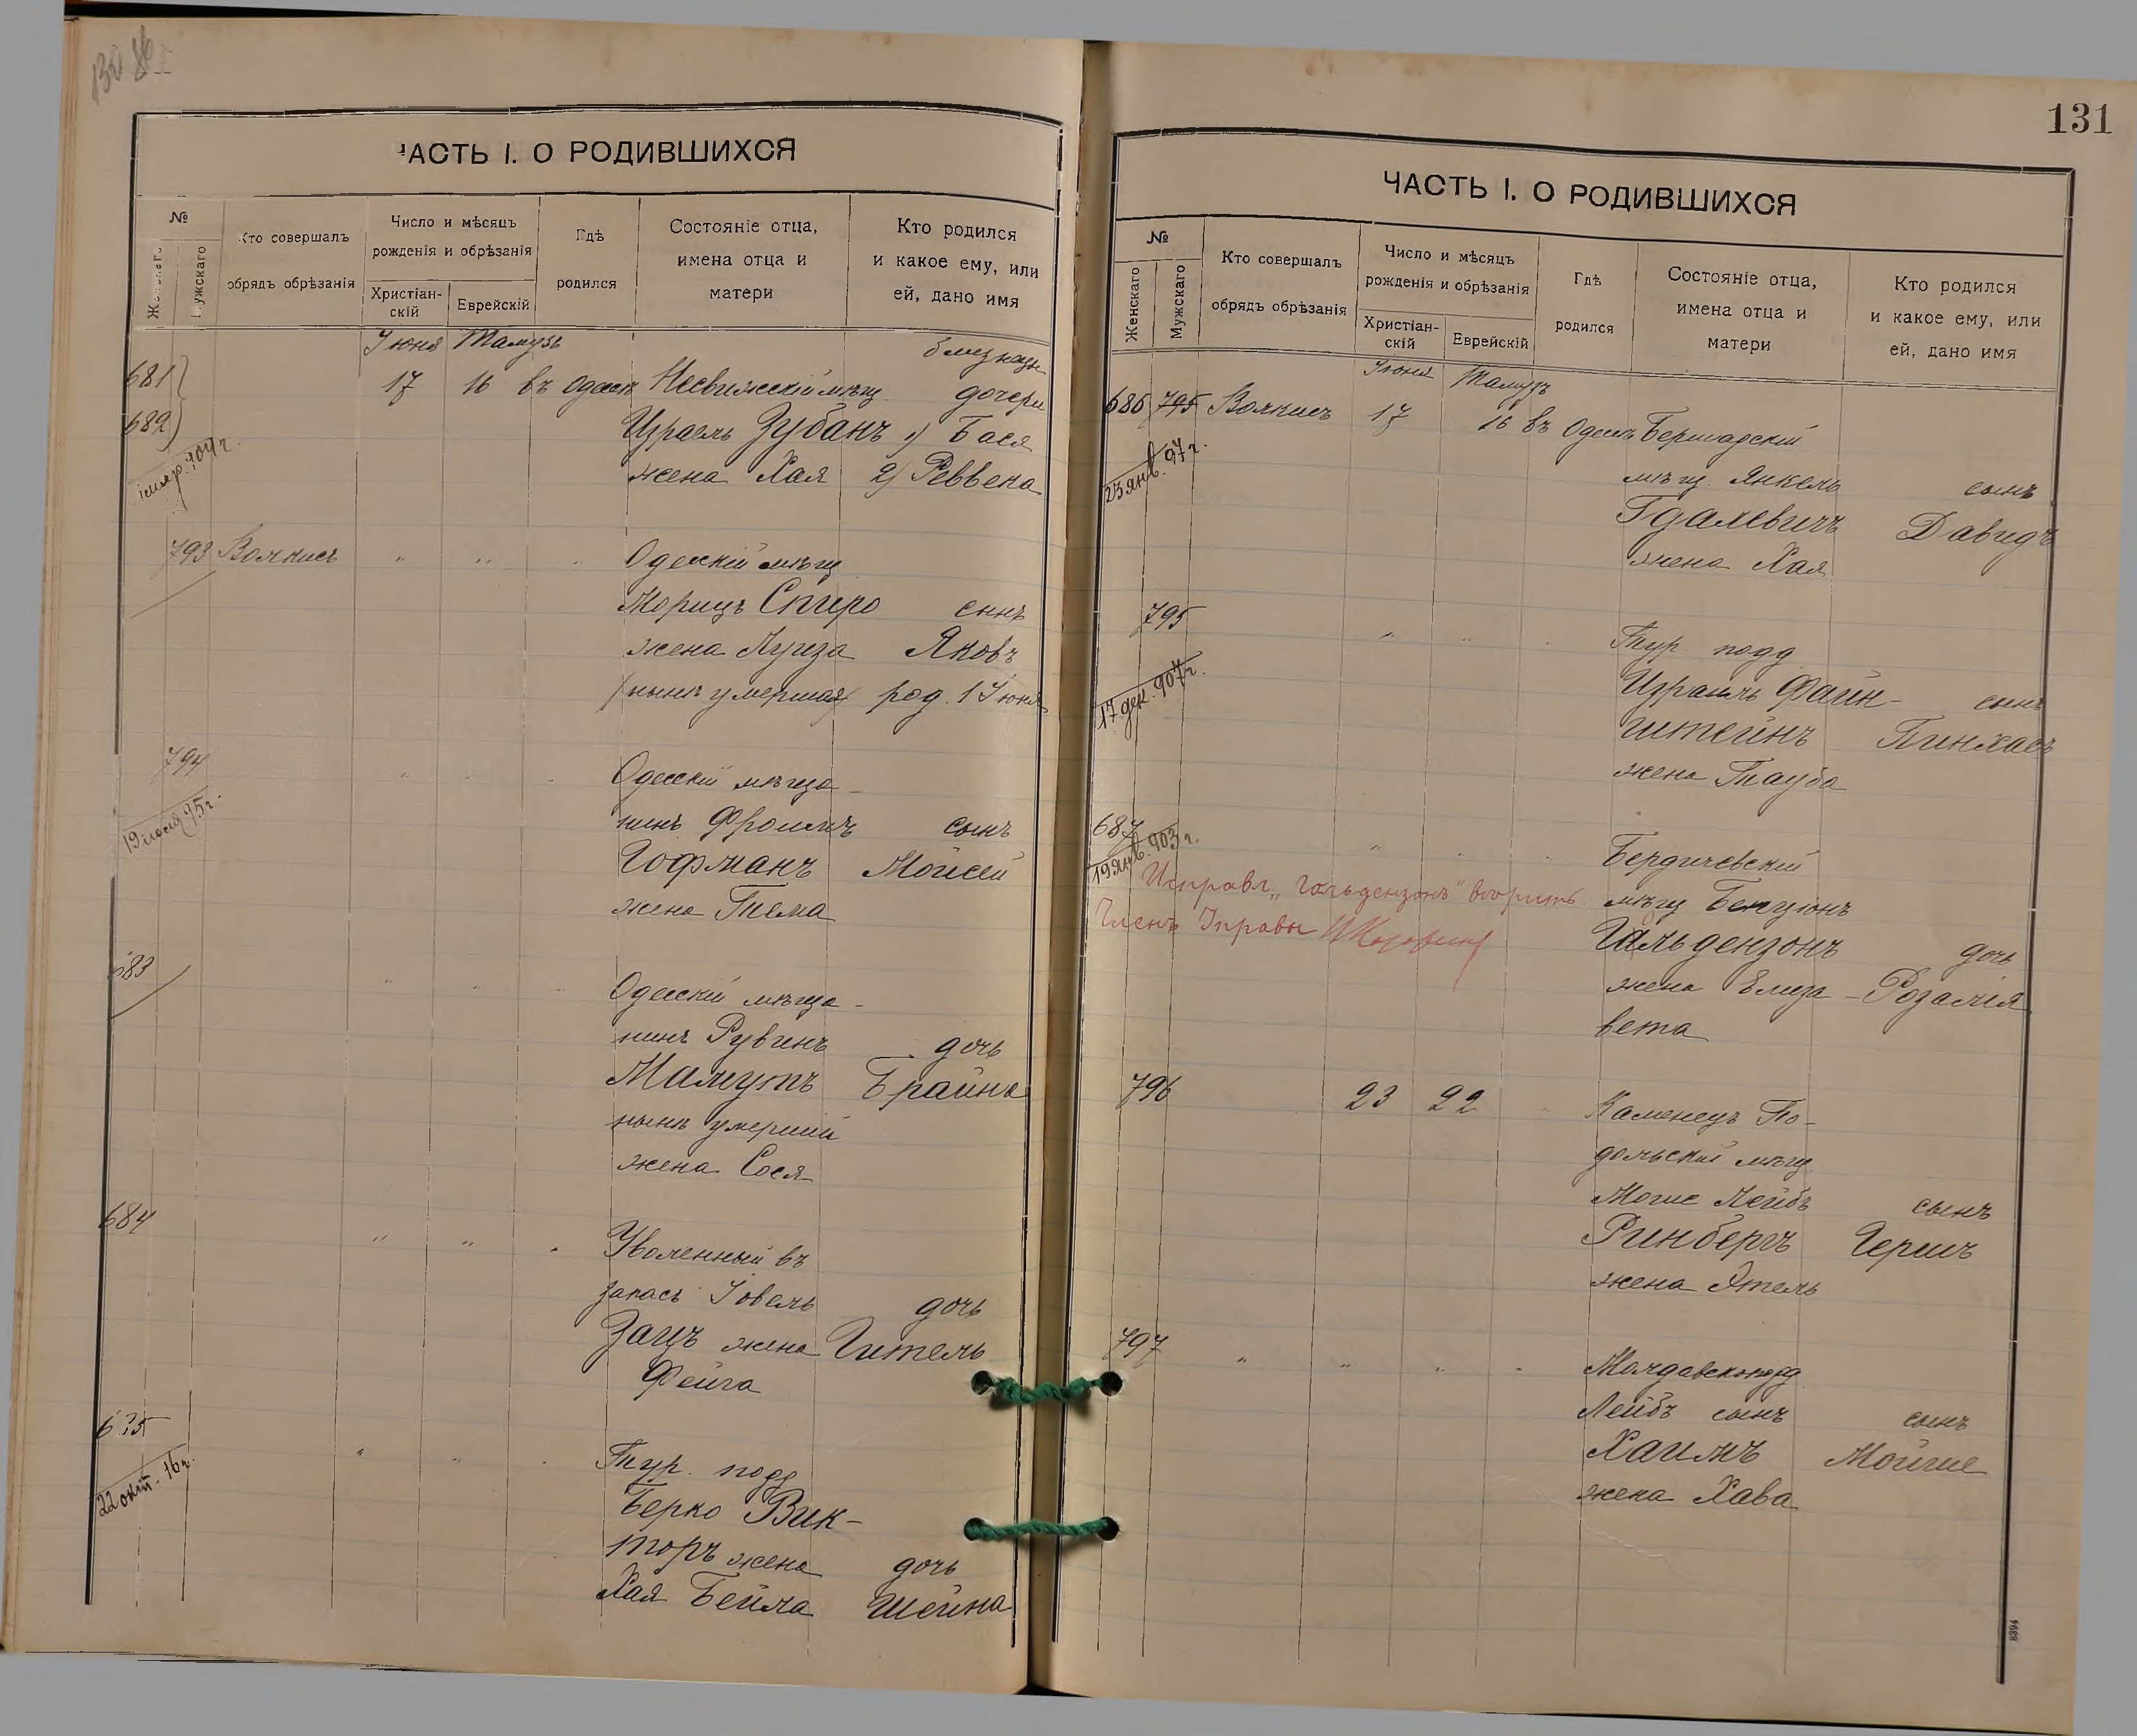 ЧАСТЬ I. О РОДИВШИХСЯ
№
Женскаго
Мужскаго
Кто совершалъ
обрядъ обрѣзанія
Число и мѣсяцъ
рожденія и обрѣзанія
Христіан-
скій
Еврейскій
Гдѣ
родился
Состояніе отца,
имена отца и
матери
Кто родился
и какое ему, или
ей, дано имя
Іюня Тамузъ близнецы
681 17 16 въ Одессѣ Несвижскій мѣщ. дочери
682 Израель Зубанъ 1) Бася
жена Хая 2) Реввека
793 Волкисъ " " Одесскій мѣщ
Морицъ Спиро сынъ
жена Луиза Яковъ
(нынѣ умершая) род. 1 Іюня
794 Одесскій мѣща-
19 іюля 95 г.
нинъ Фроимъ сынъ
Гофманъ Мойсей
жена Тема
683 Одесскій мѣща-
нинъ Рувинъ дочь
Мамутъ Брайна
нынѣ умершій
жена Сося
684 " " Уволенный въ
запасъ Іовель дочь
Зацъ жена Гитель
Фейга
685 " " Тур. подд
22 окт. 16 г.
Берко Вик-
торъ жена дочь
Хая Бейла Шейна
131
ЧАСТЬ I. О РОДИВШИХСЯ
№
Женскаго
Мужскаго
Кто совершалъ
обрядъ обрѣзанія
Число и мѣсяцъ
рожденія и обрѣзанія
Христіан-
скій
Еврейскій
Гдѣ
родился
Состояніе отца,
имена отца и
матери
Кто родился
и какое ему, или
ей, дано имя
Іюня Тамузъ
686 795 Волкисъ 17 16 въ Одессѣ Бершадскій
23 янв. 97 г.
мѣщ Янкель сынъ
Гдалевичъ Давидъ
жена Хая
795 " " Тур. подд
17 дек. 907 г.
Израиль Файн- сынъ
штейнъ Пинхасъ
жена Тауба
687 Бердичевскій
19 янв. 903 г.
Исправл. "Гольдензонъ" вѣрить.
мѣщ Бенціонъ
Членъ Управы
Гальдензонъ дочь
жена Елиза- Розалія
вета
796 23 22 Каменецъ По-
дольскій мѣщ
Мошe Лейбъ сынъ
Ринбергъ Гершъ
жена Этель
797 " " " Молдавскоподд
Лейбъ сынъ сынъ
Хаимъ Мойше
жена Хава
8394